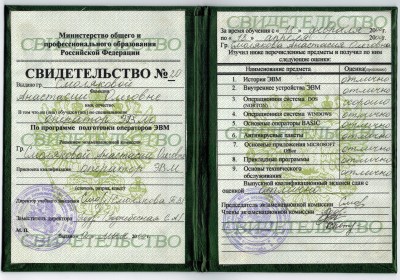 Министерство общего и
профессионального образования
Российской Федерации
СВИДЕТЕЛЬСТВО № 20
Выдано Смоляковой
Фамилия
Анастасие Олеговне
имя, отчество
В том что он (она) обучался (лась) по специальности
оператор ЭВМ
По программе подготовки операторов ЭВМ
Гр.
Смолякова Анастасия Олеговна
Присвоена квалификация оператор ЭВМ
Директор учебного заведения
Заместитель директора
М.П.
Выдано
СВИДЕТЕЛЬСТВО
За время обучения с
по 12 апреля
Гр. Смолякова Анастасия Олеговна
Изучил ниже перечисленные предметы и получил по ним
следующие оценки:
Наименования предмета Оценка
1. История ЭВМ отлично
2. Внутреннее устройства ЭВМ отлично
3. Операционная система DOS (NORTON) хорошо
4. Операционная система WINDOWS отлично
5. Основные операторы BASIC отлично
6. Антивирусные пакеты отлично
7. Основные приложения MICROSOFT Office отлично
8. Прикладные программы отлично
9. Основы технического обслуживания отлично
Выпускной квалификационный экзамен сдан с
оценкой отлично
Председатель экзаменационной комиссии
Члены экзаменационной комиссии
СВИДЕТЕЛЬСТВО